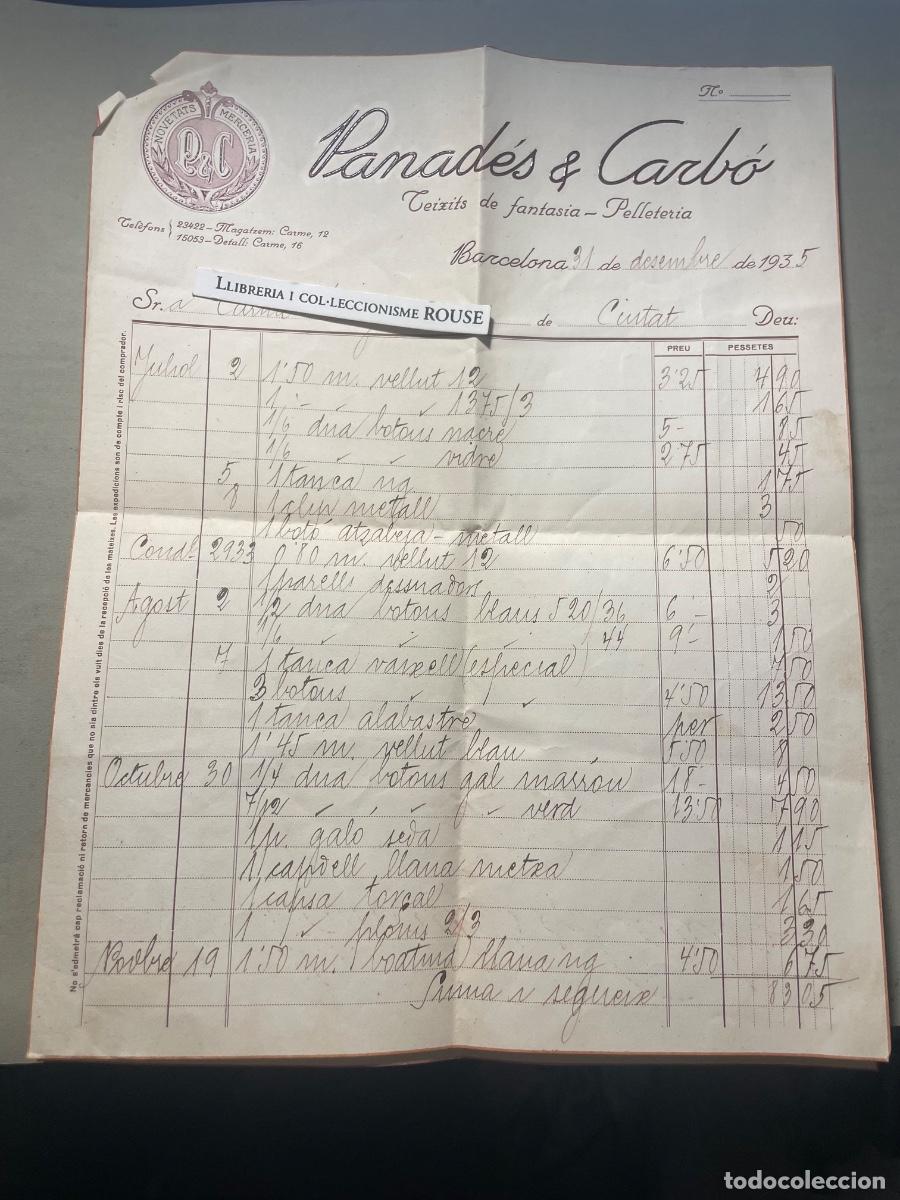 Nº
NOVETATS MERCERIA
P&C
Panadés & Carbó
Teixits de fantasia - Pelleteria
Telèfons 23422 - Magatzem: Carme, 12
15053 - Detall: Carme, 16
Barcelona 31 de desembre de 1935
LLIBRERIA I COL·LECCIONISME ROUSE
Sr.a de Ciutat Deu:
PREU PESSETES
Juliol 2 1'50 m. vellut 12 3'25 4 90
1 " " 1375/3 1 65
1/6 dna botons nacre 5- 85
1/6 " " vidre 2'75 45
5 1 tanca ng 1 75
8 1 clip metall 3
1 botó atzabeja - metall 50
Cond. 2933 0'80 m. vellut 12 6'50 5 20
1 parell 2
Agost 2 1/2 dna botons blaus 520/36 6'- 3
1/6 " " 44 9'- 1 50
7 1 tanca vaixell (especial) 7 50
3 botons " " 4'50 13 50
1 tanca alabastre per 2 50
1'45 m. vellut blau 5'50 8
Octubre 30 1/4 dna botons gal marrón 18- 4 50
7/12 " " " verd 13'50 7 90
1 p. galó seda 1 15
1 capdell llana metxa 1 50
1 capsa torçal 1 65
1 " ploms 2/3 3 30
Novbre 19 1'50 m. boatina llana ng 4'50 6 75
Suma i segueix 83 05
No s'admetrà cap reclamació ni retorn de mercancies que no sia dintre els vuit dies de la recepció de les mateixes. Les expedicions son de compte i risc del comprador.
todocoleccion